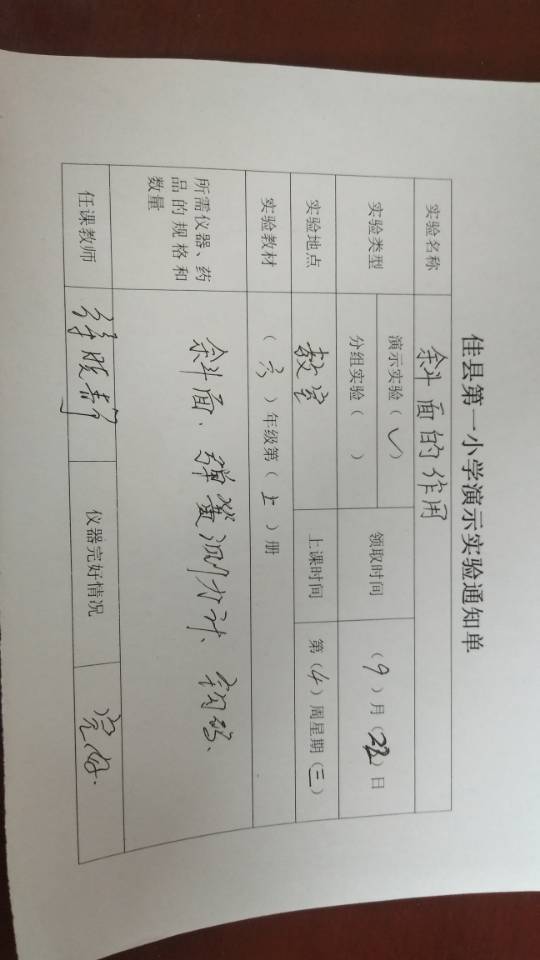 佳县第一小学演示实验通知单
实验名称 斜面的作用
实验类型 演示实验（✓） 领取时间 （9）月（22）日
分组实验（ ）
实验地点 教室 上课时间 第（4）周星期（三）
实验教材 （六）年级第（上）册
所需仪器、药品的规格和数量 斜面、弹簧测力计、钩码、
任课教师 仪器完好情况 完好.